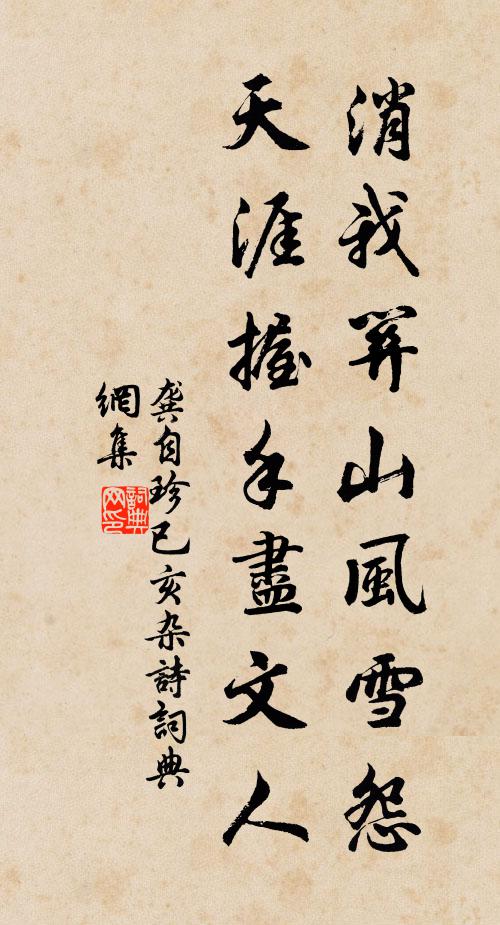 消我關山風雪怨
天涯握手盡文人
龔自珍己亥杂詩詞典
網集
詞典網印